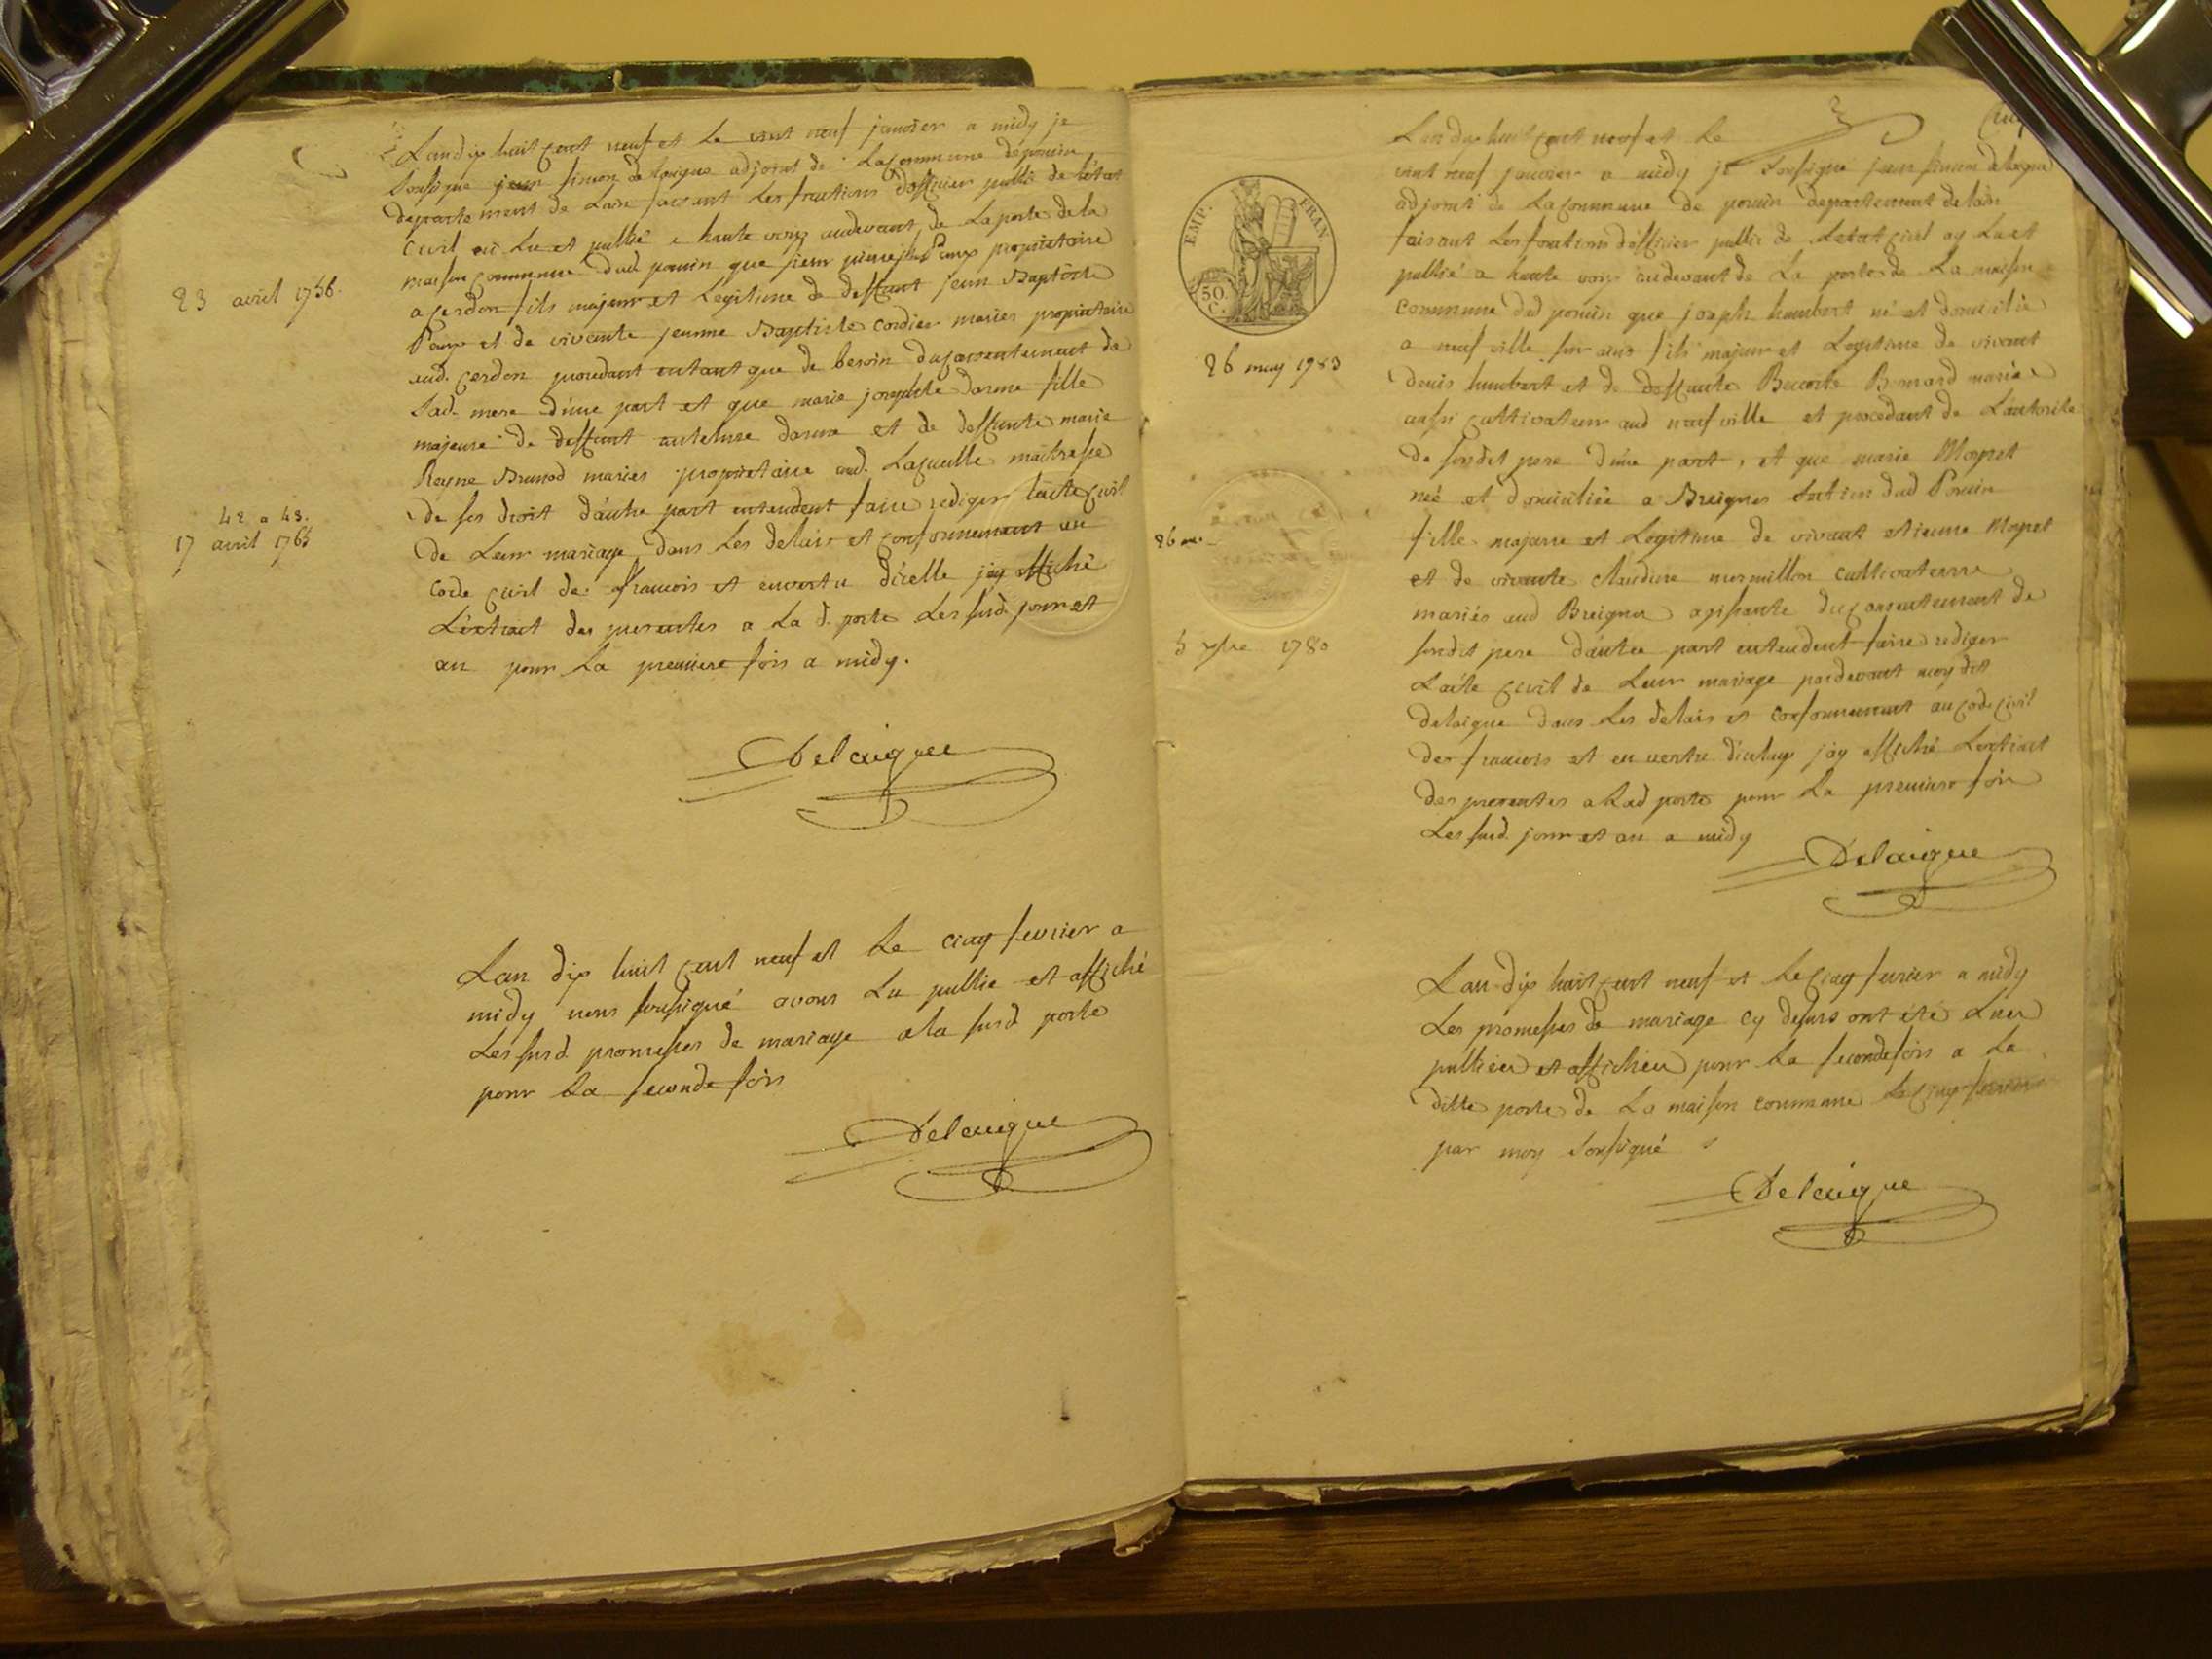 Lan dix huit cent neuf et le vint neuf janvier a midy je
Soussigne jean simon delaigue adjoint de la commune de poncin
departement de Lain faisant les fonctions dofficier public de létat
Civil ai Lu et publié a haute voix audevant de La porte de la
maison commune dud. poncin que sieur pierre joseph Paup proprietaire
a cerdon fils majeur et Legitime de deffunt jean Baptiste
Paup et de vivante jeanne Baptiste cordier mariés proprietaire
aud. cerdon procedant entant que de besoin du consentement de
Sad. mere d'une part et que marie josephte darme fille
majeure de deffunt anthelme darme et de deffunte marie
Reyne Brunod mariés proprietaire aud. Laquelle maitresse
de ses droit d'autre part entendent faire rediger lacte civil
de Leur mariage dans Les delais et conformement au
code civil des francois et envertu dicelle jay affiché
Lextrait des presentes a La d. porte Les susd. jour et
an pour La premiere fois a midy.
23 avril 1756.
42 a 43.
17 avril 1765
Delaigue
Lan dix huit cent neuf et Le cinq fevrier a
midy nous soussigné avons Lu publie et affiché
Les susd. promesses de mariage a la susd. porte
pour La seconde fois
Delaigue
3
EMP. FRAN
50.
C.
Lan dix huit cent neuf et Le
vint neuf janvier a midy je Soussigné jean simon delaigue
adjoint de La commune de poncin departement de lain
faisant Les fonctions dofficier public de Letat civil ay Lu et
publié a haute voix audevant de La porte de La maison
commune dud poncin que joseph humbert né et domicilié
a neuf ville sur ains fils majeur et Legitime de vivant
denis humbert et de deffunte Bernard mariés
aussi cultivateur aud neufville et procedant de Lautorité
de sondit pere d'une part, et que marie Moyret
neé et domiciliée a Breignes Section dud Poncin
fille majeure et Legitime de vivant etienne Moyret
et de vivante claudine mermillon cultivateurs
mariés aud Breignes agissante du consentement de
sondit pere d'autre part entendent faire rediger
Lacte civil de Leur mariage pardevant moy dit
delaigue dans Les delais et conformement au code civil
des francois et en vertu dicelluy jay affiché Lextrait
des presentes a Lad porte pour La premiere fois
Les susd. jour et an a midy
26 may 1783
5 7bre 1780
Delaigue
Lan dix huit cent neuf et Le cinq fevrier a midy
Les promesses de mariage cy dessus ont été Lues
publiées et affichées pour La seconde fois a La
ditte porte de La maison commune
par moy soussigné
Delaigue